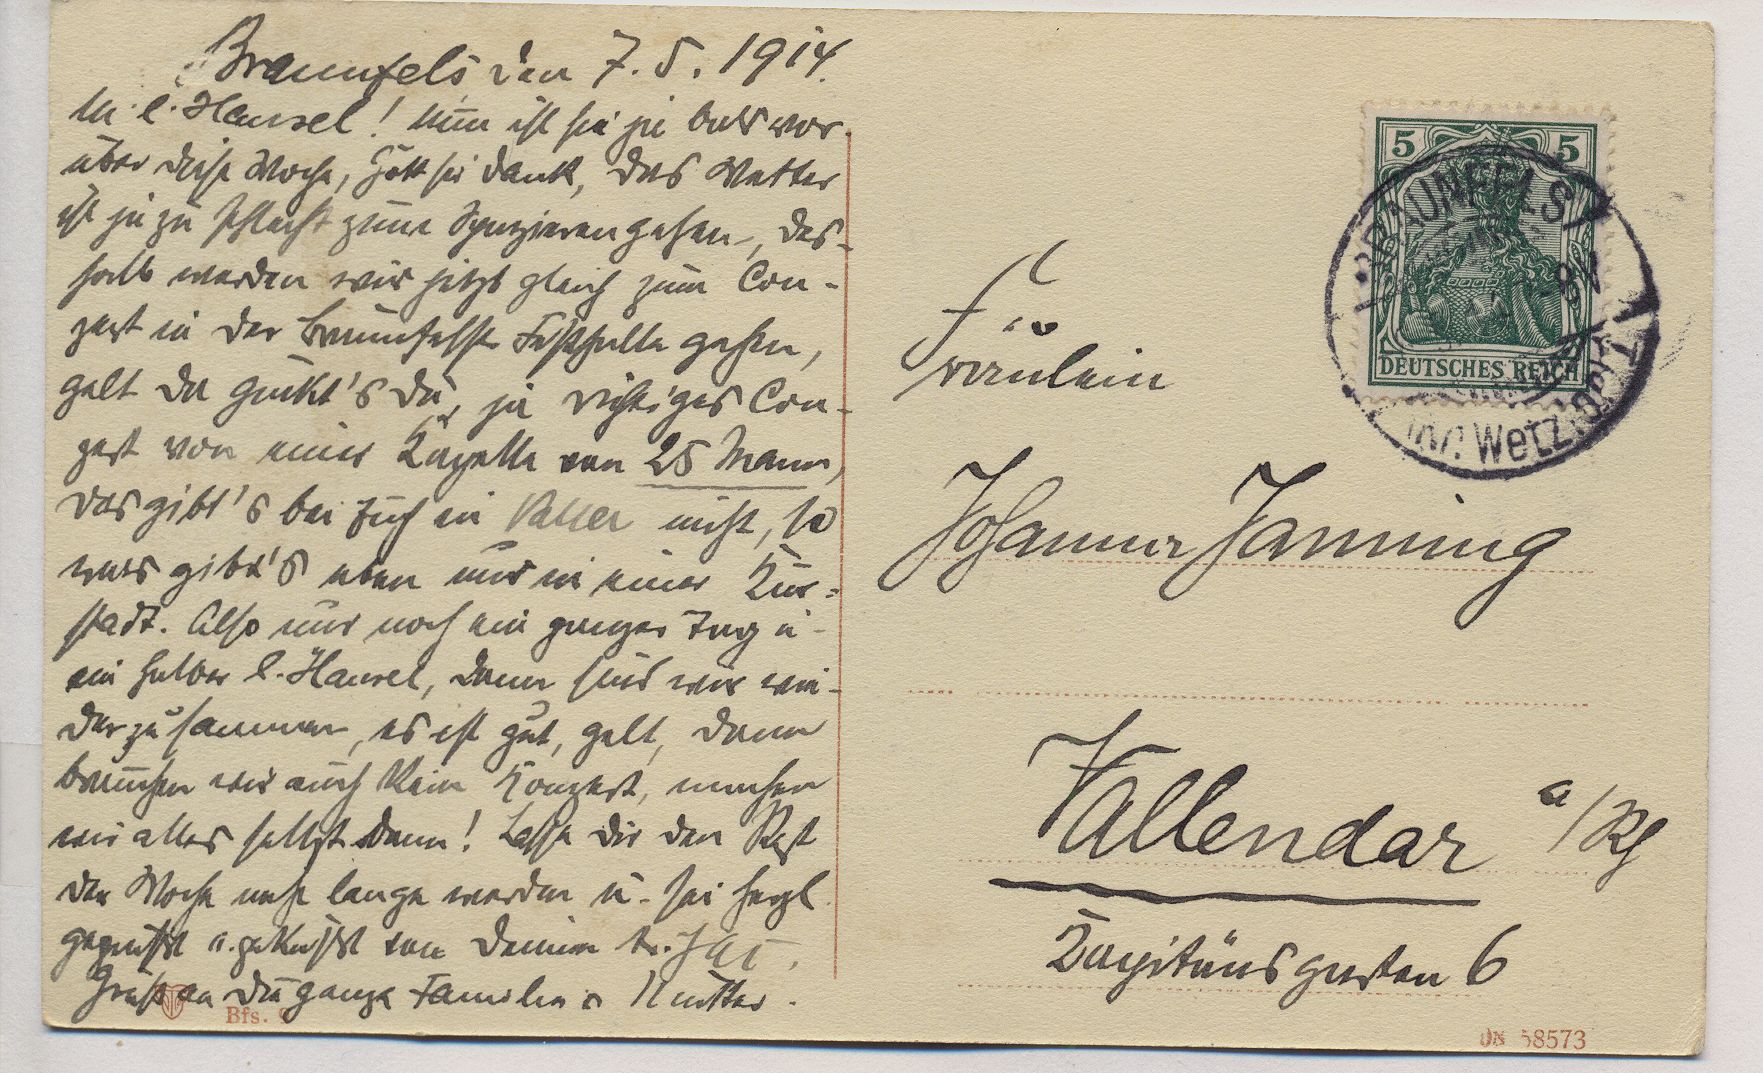 Braunfels, den 7.5.1914.
M. l. Hansel! Nun ist sie ja bald vor-
über diese Woche, Gott sei Dank, das Wetter
ist ja zu schlecht zum Spazierengehen, des-
halb werden wir jetzt gleich zum Con-
zert in der Braunfelser Festhalle gehen,
gelt da guckt's Du, ja richtiges Con-
zert von einer Kapelle von 25 Mann,
das gibt's bei Euch in Valler nicht, so
was gibt's eben nur in einer Kur-
stadt. Also nur noch ein ganzer Tag u.
ein halber l. Hansel, dann sind wir wie-
der zusammen, es ist gut, gelt, dann
brauchen wir auch kein Konzert, machen
wir alles selbst dann! Lasse Dir den Rest
der Woche nicht lange werden u. sei herzl.
gegrüßt u. geküßt von Deinem tr.
Gruß an die ganze Familie u. Mutter.
Bfs.
5 5
DEUTSCHES REICH
BRAUNFELS
Kr. Wetzlar
Fräulein
Johanna Janning
Vallendar a/Rh
Kapitänsgarten 6
58573